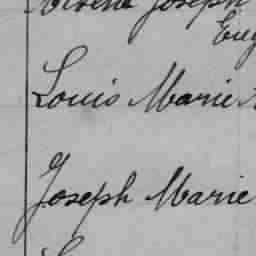 Joseph
Eug
Louis Marie
Joseph Marie